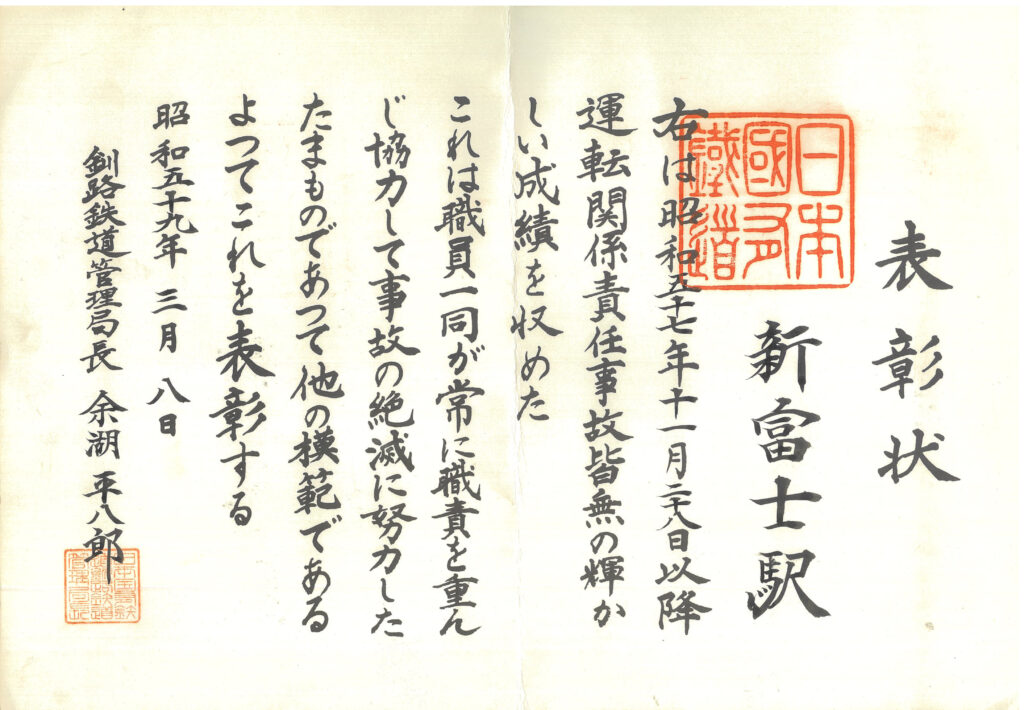 表彰状
新富士駅
右は昭和五十七年十一月二十八日以降
運転関係責任事故皆無の輝か
しい成績を収めた
これは職員一同が常に職責を重ん
じ協力して事故の絶滅に努力した
たまものであつて他の模範である
よつてこれを表彰する
昭和五十九年三月八日
釧路鉄道管理局長 余湖平八郎
日本
國有
鐵道